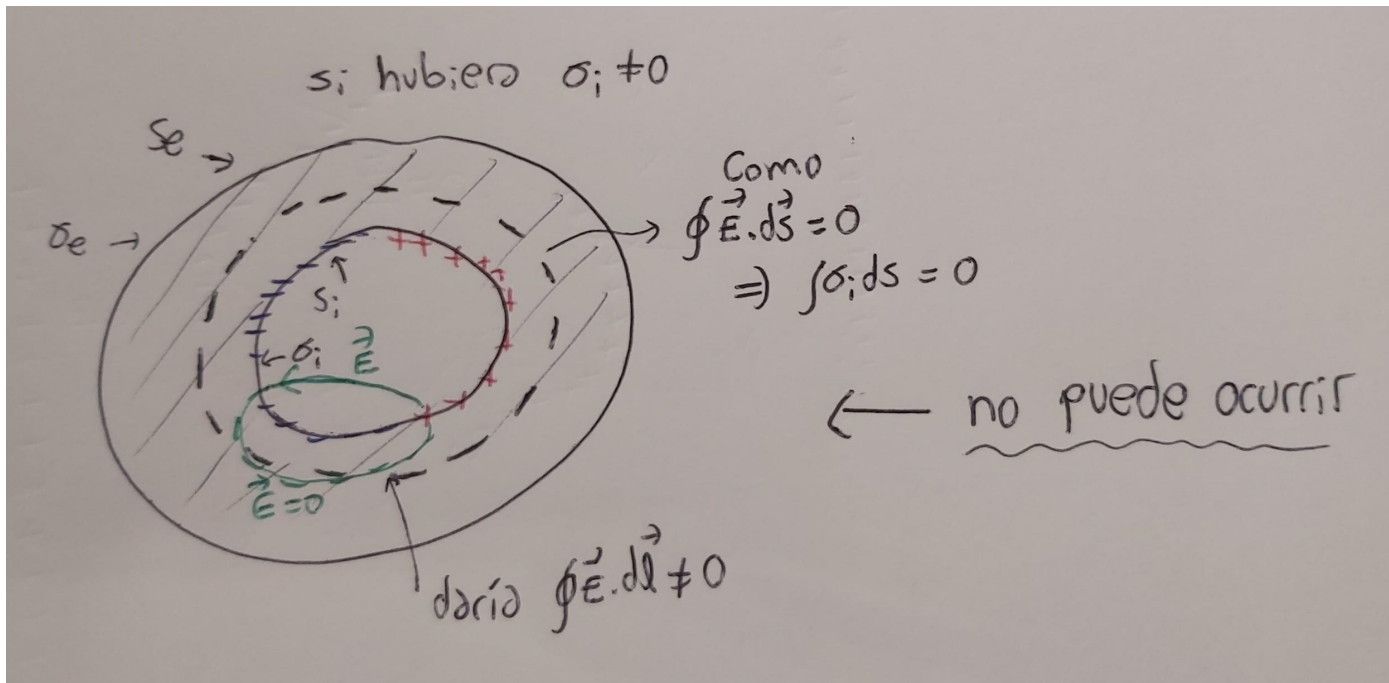 si hubiera σi ≠ 0
Se →
σe →
Como
∮E⃗.dS⃗ = 0
⇒ ∫σi ds = 0
Si
σi
E⃗
← no puede ocurrir
E⃗ = 0
daría ∮E⃗.dl⃗ ≠ 0